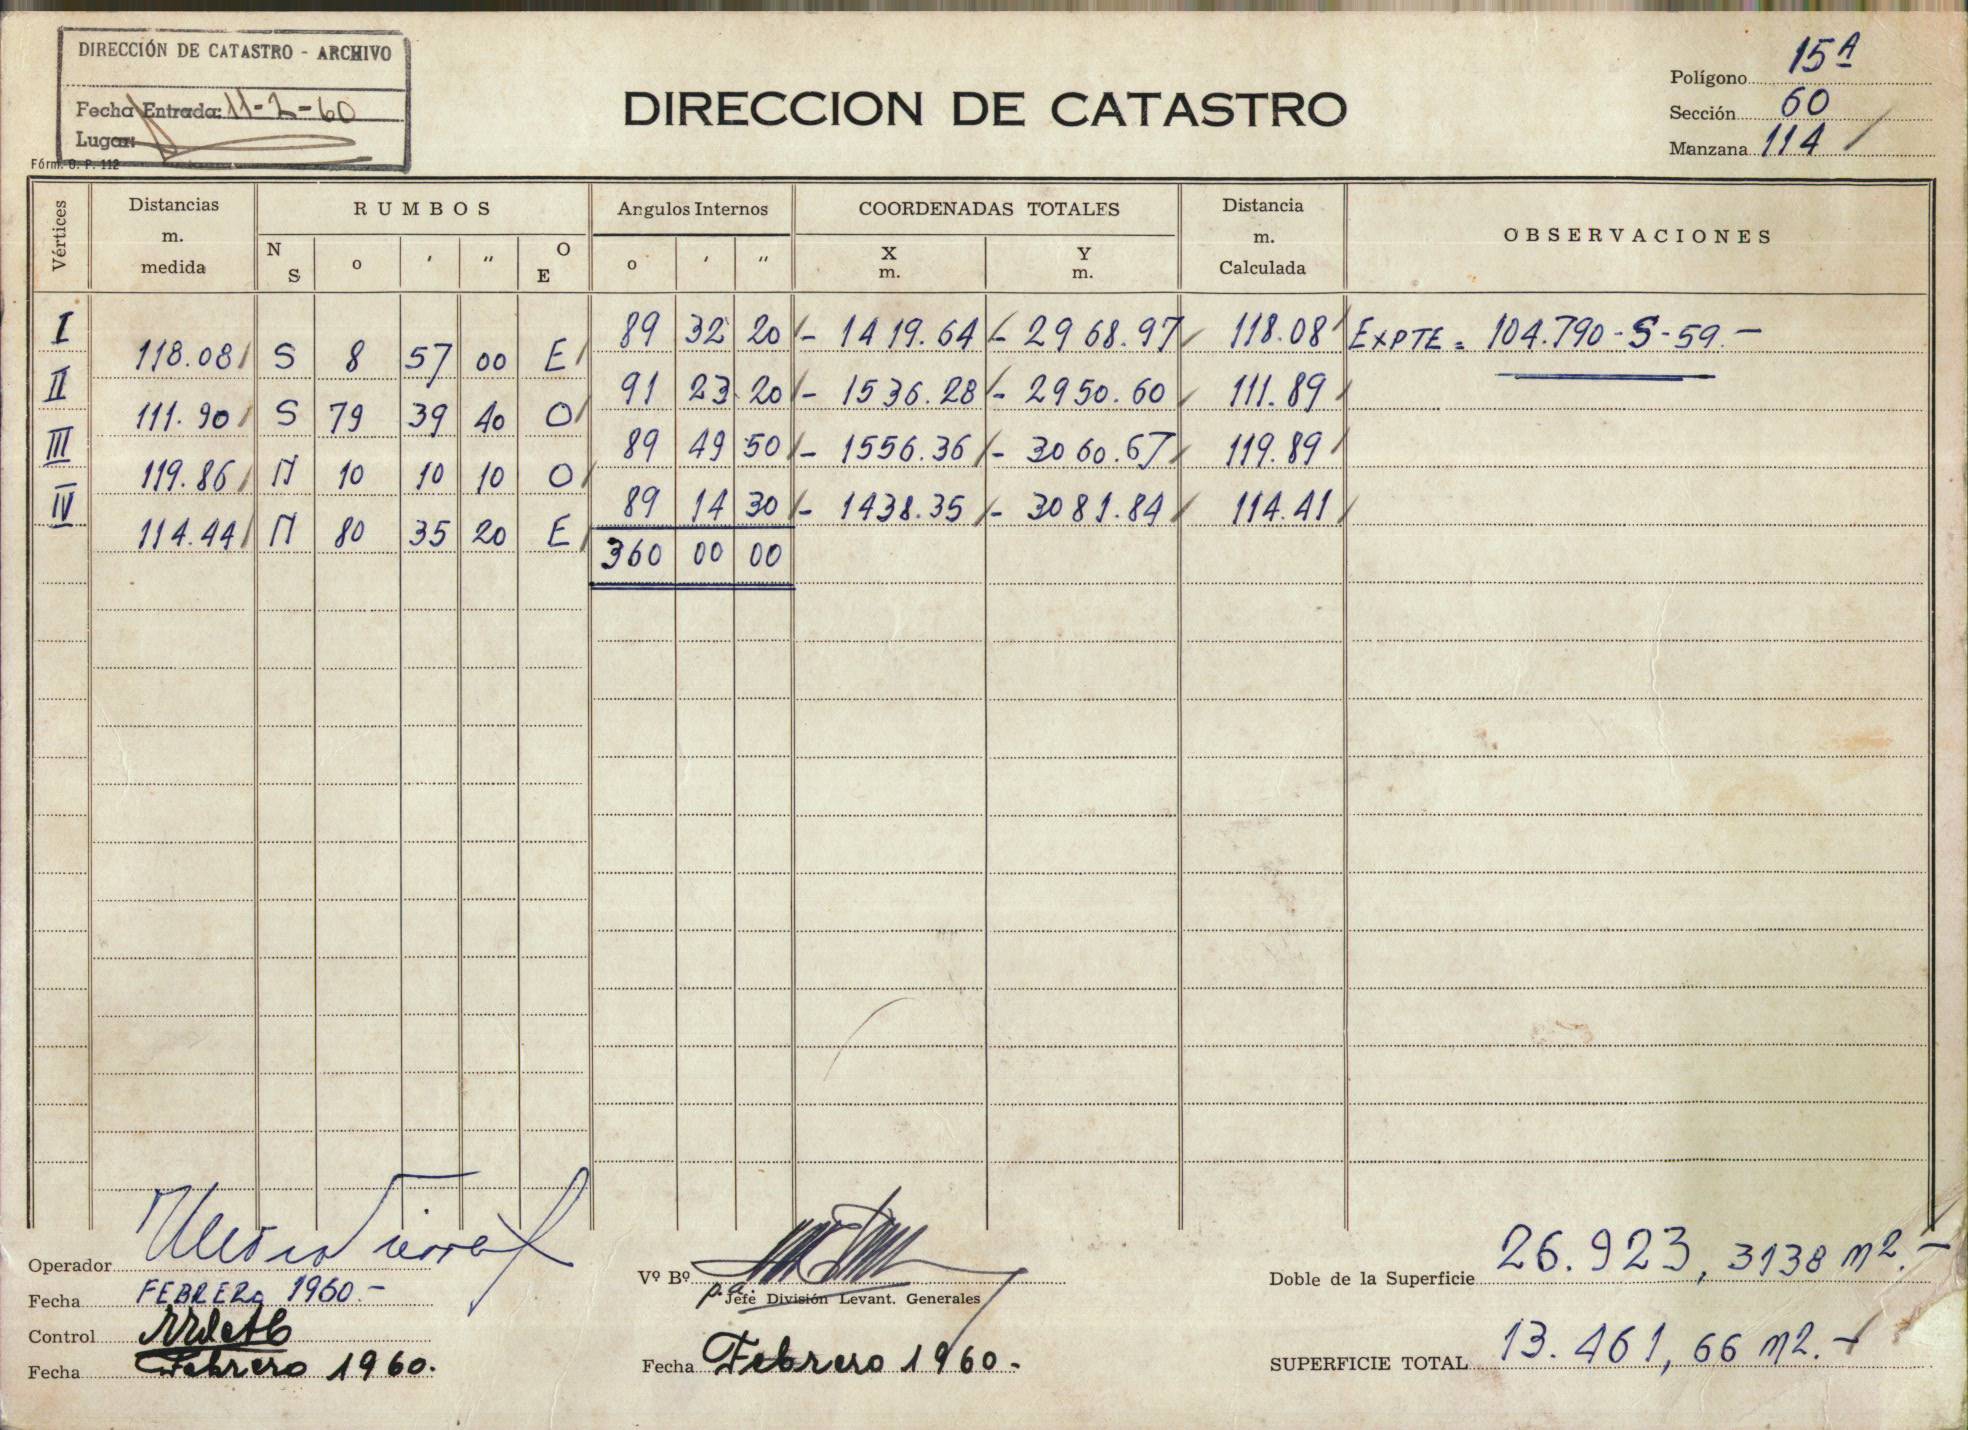 DIRECCIÓN DE CATASTRO - ARCHIVO
Fecha Entrada: 11-2-60
Lugar:
Fórm. O. P. 112
DIRECCION DE CATASTRO
Polígono 15A
Sección 60
Manzana 114
Vértices Distancias m. medida RUMBOS Angulos Internos COORDENADAS TOTALES Distancia m. Calculada OBSERVACIONES
N S o ′ ″ O E o ′ ″ X m. Y m.
I 89 32 20 - 1419.64 - 2968.97 118.08 EXPTE = 104.790-S-59.-
118.08 S 8 57 00 E
II 91 23 20 - 1536.28 - 2950.60 111.89
111.90 S 79 39 40 O
III 89 49 50 - 1556.36 - 3060.67 119.89
119.86 N 10 10 10 O
IV 89 14 30 - 1438.35 - 3081.84 114.41
114.44 N 80 35 20 E
360 00 00
Operador
Fecha FEBRERO 1960.-
Control
Fecha Febrero 1960.
Vº Bº
p.a. Jefe División Levant. Generales
Fecha Febrero 1960.-
Doble de la Superficie 26.923,3138 m2.-
SUPERFICIE TOTAL 13.461,66 m2.-